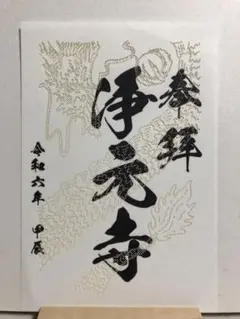 奉拝
浄元寺
令和六年 甲辰